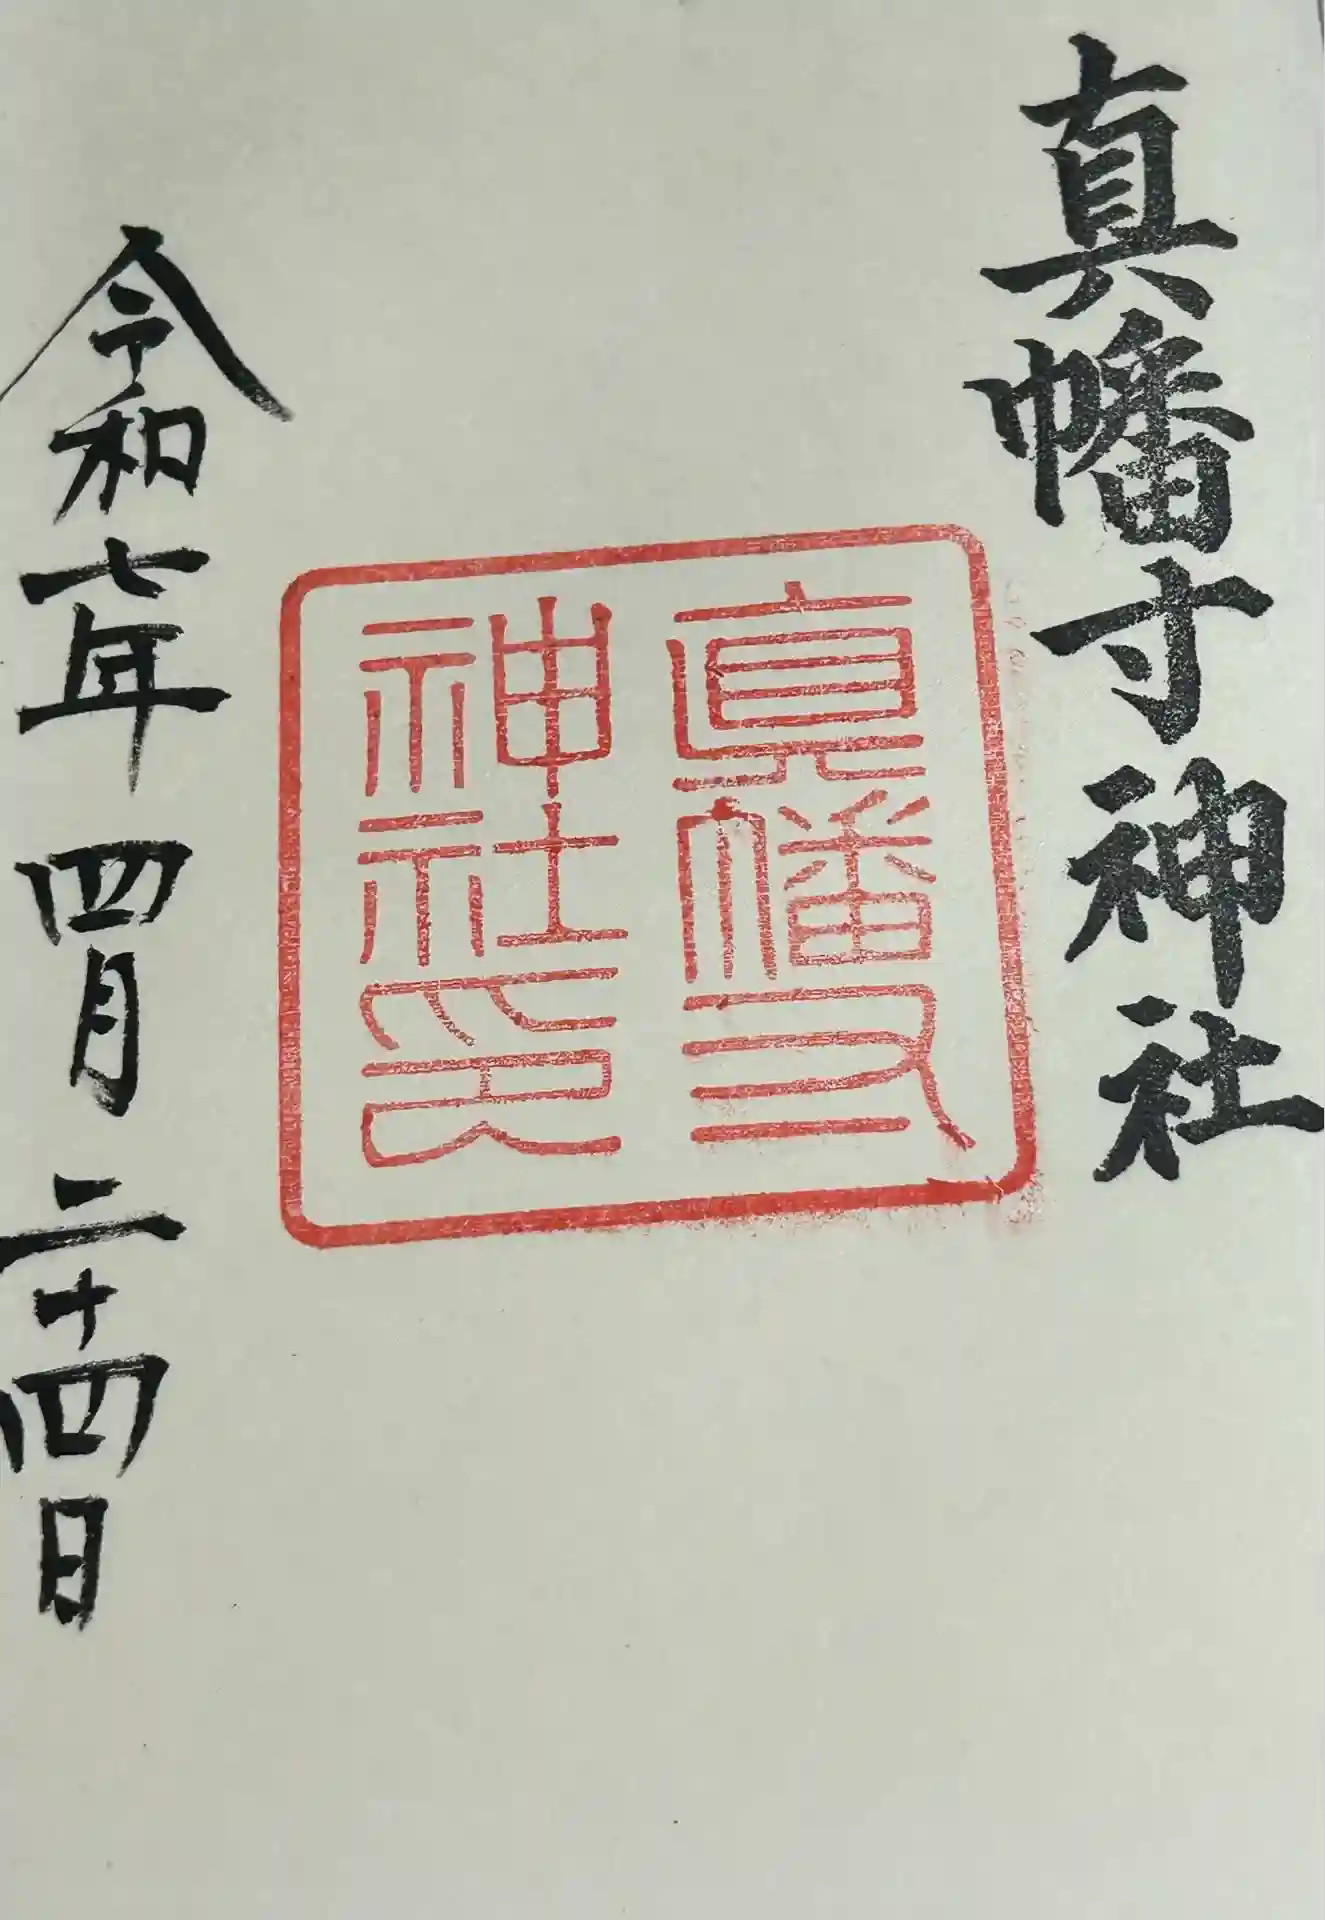 真幡寸神社
眞幡寸
神社印
令和七年 四月 二十四日